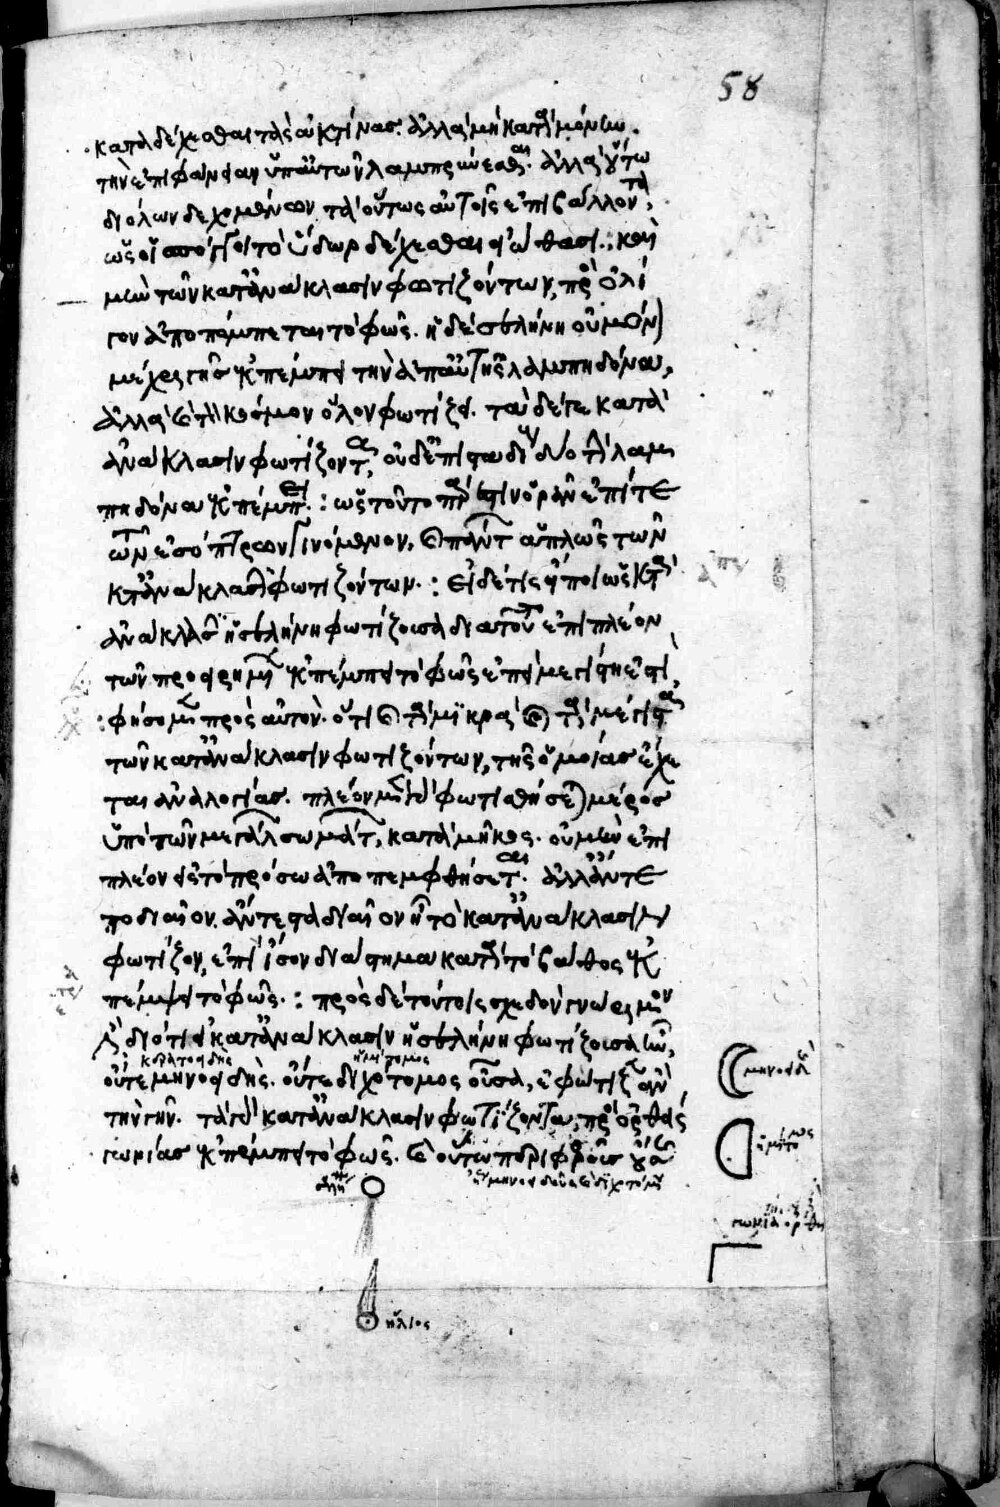 58
καταδέχεσθαι τὰς ἀκτῖνας. ἀλλὰ μὴ κατὰ μόνην
τὴν ἐπιφάνειαν ὑπ' αὐτῶν λαμπρύνεσθαι. ἀλλὰ οὕτω
δι' ὅλων δεχομένων τὰ οὕτως αὐτοῖς ἐπιβάλλοντα,
ὡς οἱ σπόγγοι τὸ ὕδωρ δέχεσθαι εἰώθασι: καὶ
μὲν τῶν κατὰ ἀνάκλασιν φωτιζόντων, πρὸς ὀλί
γον ἀποπέμπεται τὸ φῶς. ἡ δὲ σελήνη οὐ μόνον
μέχρι γῆς ἐκπέμπει τὴν ἀπ' αὐτῆς λαμπηδόνα,
ἀλλὰ καὶ τὸν κόσμον ὅλον φωτίζει. τὰ δέ γε κατὰ
ἀνάκλασιν φωτίζοντα, οὐδ' ἐπὶ σταδίους δύο τὴν λαμ
πηδόνα ἐκπέμπει: ὡς τοῦτο πάρεστιν ὁρᾶν ἐπί τε
τῶν ἐσόπτρων γινόμενον, καὶ πάντων ἁπλῶς τῶν
κατὰ ἀνάκλασιν φωτιζόντων: εἰ δέ τις εἴποι ὡς κατὰ
ἀνάκλασιν ἡ σελήνη φωτίζουσα διὰ τοῦτο ἐπὶ πλέον
τῶν προειρημένων ἐκπέμπει τὸ φῶς ἐπεὶ μεγίστη ἐστί,
φήσομεν πρὸς αὐτόν. ὅτι καὶ τὰ μικρὰ καὶ τὰ μέγιστα
τῶν κατὰ ἀνάκλασιν φωτιζόντων, τῆς ὁμοίας ἔχε
ται ἀναλογίας. πλέον μὲν γὰρ φωτισθήσεται μέρος
ὑπὸ τῶν μεγάλων σωμάτων, κατὰ μῆκος. οὐ μὴν ἐπὶ
πλέον εἰς τὸ πρόσω ἀποπεμφθήσεται. ἀλλ' ἄν τε
ποδιαῖον, ἄν τε σταδιαῖον ᾖ τὸ κατὰ ἀνάκλασιν
φωτίζον, ἐπὶ ἴσον διάστημα κατὰ τὸ βάθος ἐκ
πέμψει τὸ φῶς: πρὸς δὲ τούτοις σχεδὸν γνώριμον
διότι εἰ κατὰ ἀνάκλασιν ἡ σελήνη φωτίζουσα ἦν,
οὔτε μηνοειδὴς. οὔτε διχότομος οὖσα, ἐφώτιζεν ἂν
τὴν γῆν. τὰ γὰρ κατὰ ἀνάκλασιν φωτίζοντα, πρὸς ὀρθὰς
γωνίας ἐκπέμπει τὸ φῶς. καὶ οὕτω περιφεροῦς
μηνοειδ
ἡμίτομος
γωνία ὀρθή
σελήνη
ἥλιος